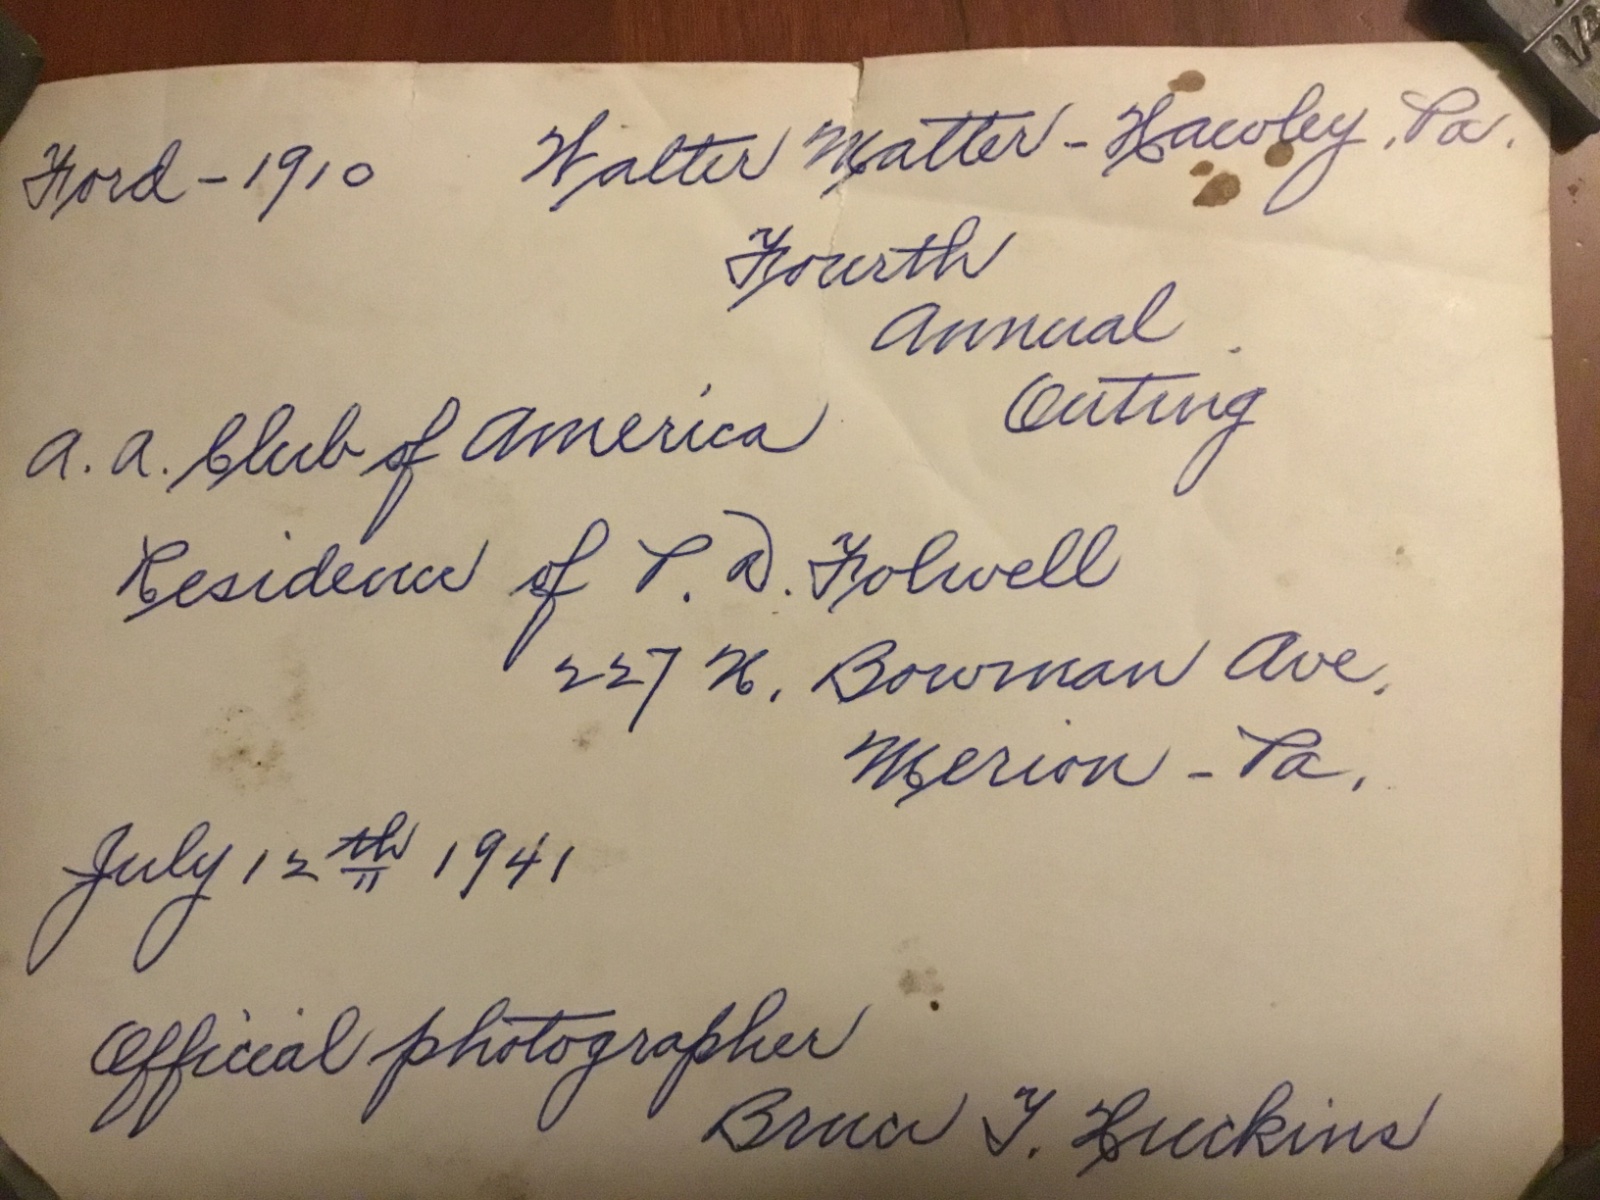 Ford - 1910 Walter Matter - Hawley, Pa.
Fourth
Annual
Outing
A. A. Club of America
Residence of P. D. Folwell
227 N. Bowman Ave.
Merion - Pa.
July 12th 1941
Official photographer
Bruce T. Huckins